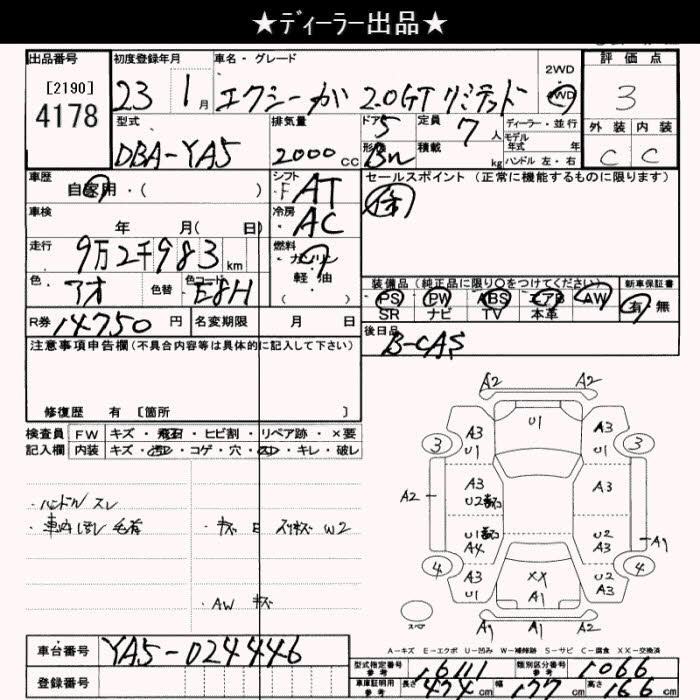 ★ディーラー出品★
出品番号 初度登録年月 車名・グレード 2WD 評価点
[2190]
4178 23 1月 エクシーガ 2.0GT リミテッド 4WD 3
型式 排気量 ドア 定員 ディーラー・並行 外装 内装
DBA-YA5 2000cc 5 7人 モデル年式 年 C C
形状 Bn 積載 kg ハンドル 左・右
車歴 自家用・( ) シフト F AT セールスポイント (正常に機能するものに限ります)
車検 年 月( 日) 冷房 AC
走行 9万2千983km 燃料 ガソリン
色 アオ 色替 色コード E8H 軽油
( )
装備品(純正品に限り○をつけてください) 新車保証書
PS PW ABS エアB AW 有 無
SR ナビ TV 本革
R券 14750円 名変期限 月 日 後日品
B-CAS
注意事項申告欄(不具合内容等は具体的に記入して下さい)
修復歴 有 [箇所 ]
検査員 FW キズ・飛石・ヒビ割・リペア跡・×要
記入欄 内装 キズ・汚レ・コゲ・穴・スレ・キレ・破レ
・ハンドル スレ
・キズ E スリキズ W2
・AW キズ
A2 A2
U1
A3 U1 A3 U1
3 3
A2 A3 U2 A3
U1 A4 U2 A3 A1
4 4
A3 U1 XX A1 U2 A3
スペア A1 A1 A1
A-キズ E-エクボ U-凹み W-補修跡 S-サビ C-腐食 XX-交換済
車台番号 YA5-024446
登録番号
型式指定番号 参考 16111 類別区分番号 参考 1066
車庫証明用 参考 長さ 474cm 幅 177cm 高さ 166cm